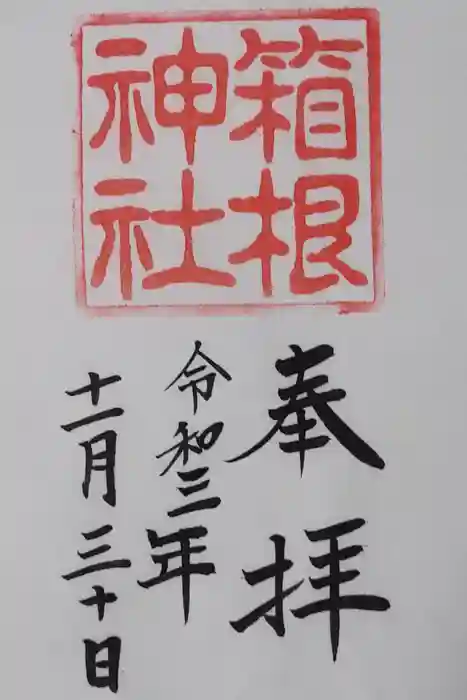 箱根
神社
奉拝
令和三年
十一月三十日